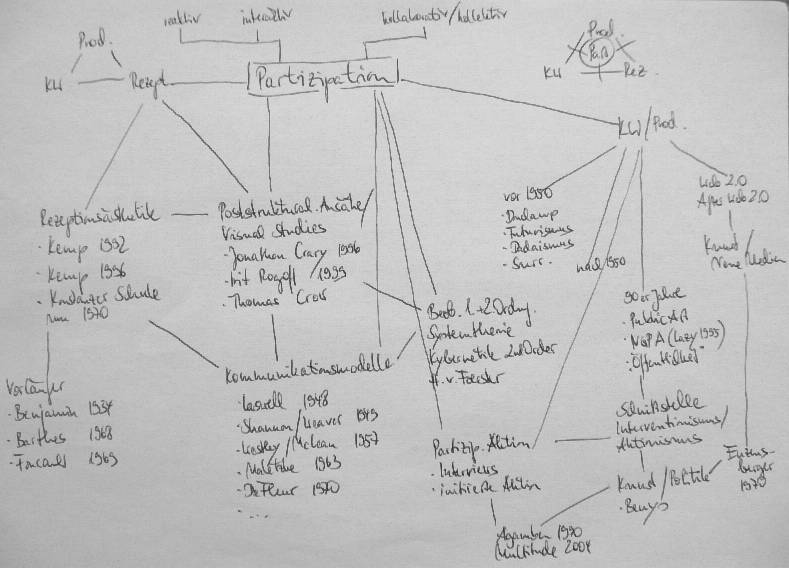 reaktiv
interaktiv
kollaborativ/kollektiv
Prod.
KW
Rezept
Partizipation
Prod.
Part
KW
Rez.
KW/Prod.
Rezeptionsästhetik
· Kemp 1992
· Kemp 1996
· Konstanzer Schule
um 1970
Poststruktural. Ansätze/
Visual Studies
· Jonathan Crary 1996
· Irit Rogoff 1999
· Thomas Crow
vor 1950
· Duchamp
· Futurismus
· Dadaismus
· Surr.
nach 1950
Web 2.0
After Web 2.0
Kunst/
Neue Medien
90er Jahre
· Public Art
· NGPA (Lacy 1995)
· "Öffentlichkeit"
Beob. 1.+2. Ordng.
Systemtheorie
Kybernetik 2nd Order
H. v. Foerster
Vorläufer
· Benjamin 1934
· Barthes 1968
· Foucault 1969
Kommunikationsmodelle
· Laswell 1948
· Shannon/Weaver 1949
· Westley/McLean 1957
· Maletzke 1963
· DeFleur 1970
· ...
Partizip. Aktion
· Interviews
· initiierte Aktion
Schnittstelle
Interventionismus/
Aktionismus
Kunst/Politik
· Beuys
Enzens-
berger
1970
Agamben 1990
Multitude 2004